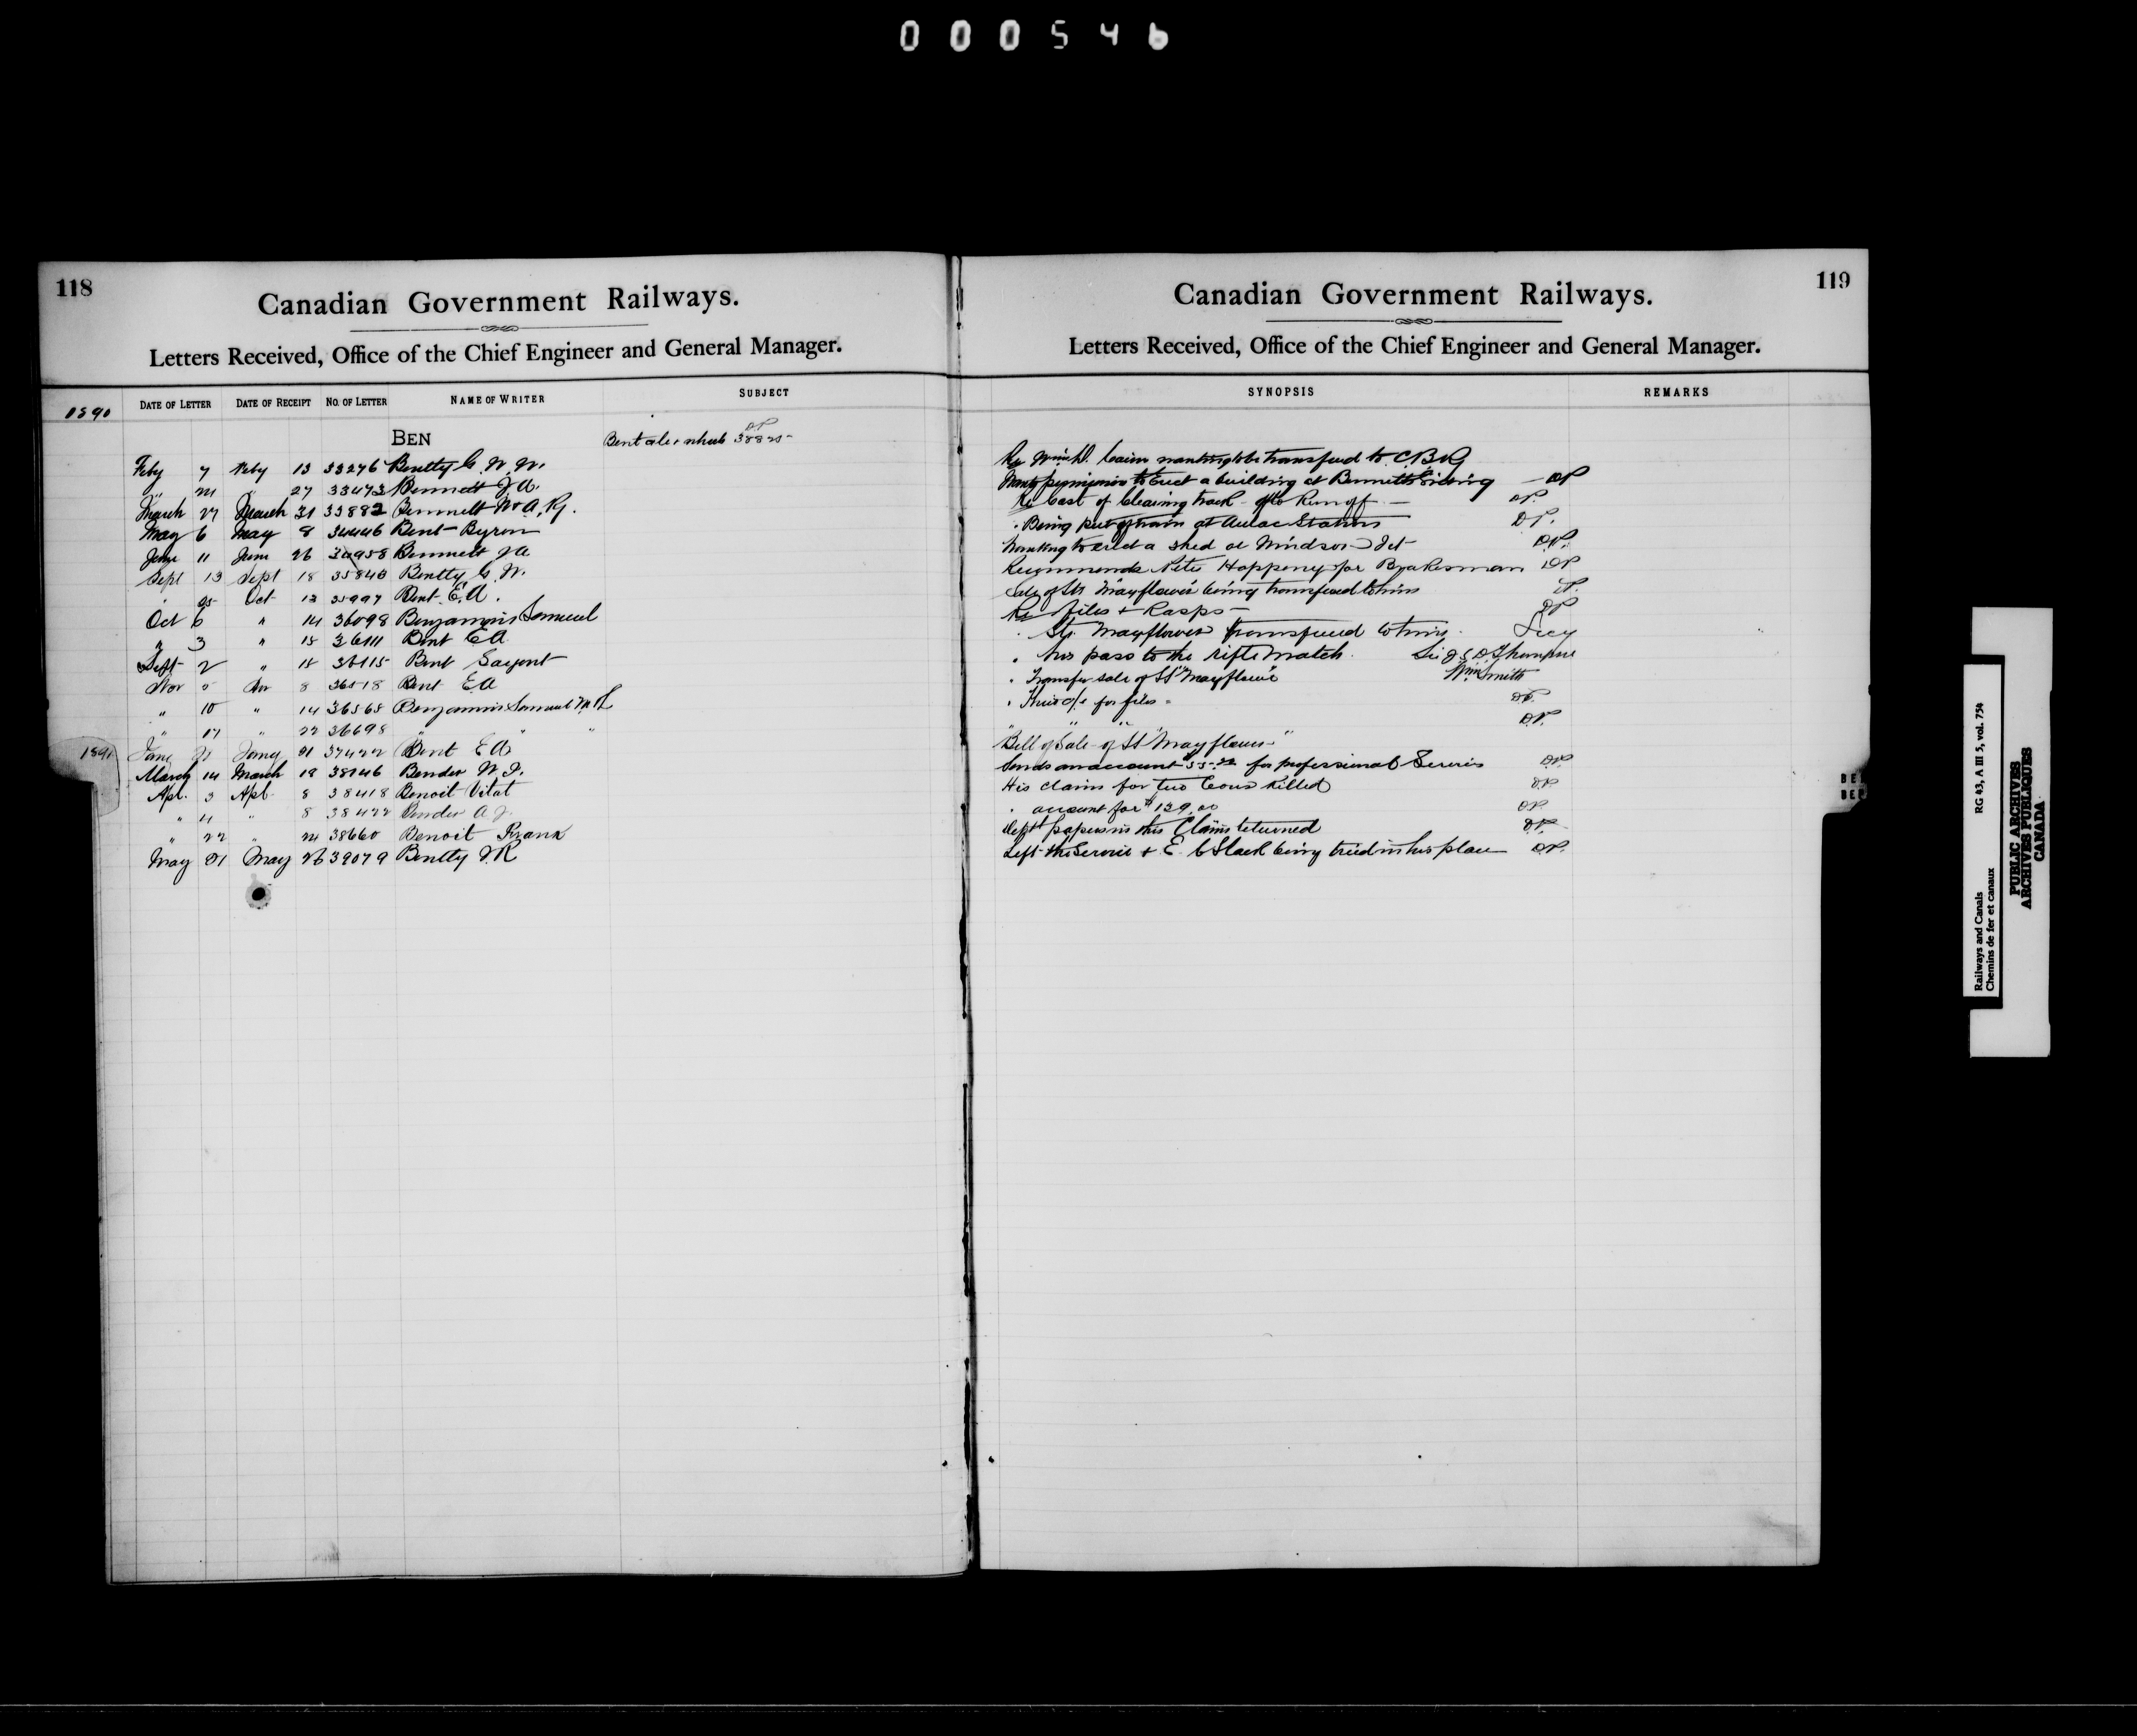 000546
118
Canadian Government Railways.
Letters Received, Office of the Chief Engineer and General Manager.
1890 DATE OF LETTER DATE OF RECEIPT NO. OF LETTER NAME OF WRITER SUBJECT
DP
BEN Bent 38825
Feby 7 Feby 13 33276 Bentty G. W. W.
" 24 " 27 33473 Bennett J A.
March 27 March 31 33882 Bennett W A. Ry.
May 6 May 8 34446 Bent Byron
June 11 June 26 34958 Bennett J A
Sept 13 Sept 18 35840 Bentty G. W.
" 25 Oct 13 35997 Bent E. A.
Oct 6 " 14 36098 Benjamin Samuel
" 3 " 15 36111 Bent E A
Sept 2 " 15 36115 Bent Sargent
Nov 5 Nov 8 36518 Bent E A
" 10 " 14 36565 Benjamin Samuel
" 17 " 22 36698 " " "
1891 Jany Jany 21 37422 Bent E A
March 14 March 18 38146 Bender W. J.
Apl. 3 Apl. 8 38418 Benoit Vital
" 4 " 8 38422 Bender A J.
" 22 " 24 38660 Benoit Frank
May 21 May 26 39079 Bentty J R
119
Canadian Government Railways.
Letters Received, Office of the Chief Engineer and General Manager.
SYNOPSIS REMARKS
Re wanting to be transferred to C. B Ry
Wants permission to Erect a building at Bennetts Siding - DP
Re Cost of Clearing track after Run off - DP.
" Being put off train at Aulac Station DP.
Wanting to erect a shed at Windsor Jct DP.
Recommends Peter Hoppeny for Brakesman DP
Sale of Str "Mayflower" being transferred to him
Re Files & Rasps - DP
" Str Mayflower transferred to him. Secy
" his pass to the rifle match. Sir J S D Thompson
" Transfer sale of SS "Mayflower" Wm Smith
" His a/c for files - DP.
" " " DP.
Bill of Sale of SS "Mayflower"
Sends an account for professional Services DP
His claim for two Cows Killed DP
" account for $129.00 DP
Dept papers in this Claim returned DP.
Left the Service & E. C Slack being tried in his place DP.
BE
BE
Railways and Canals RG 43, A III 5, vol. 754
Chemins de fer et canaux
PUBLIC ARCHIVES
ARCHIVES PUBLIQUES
CANADA